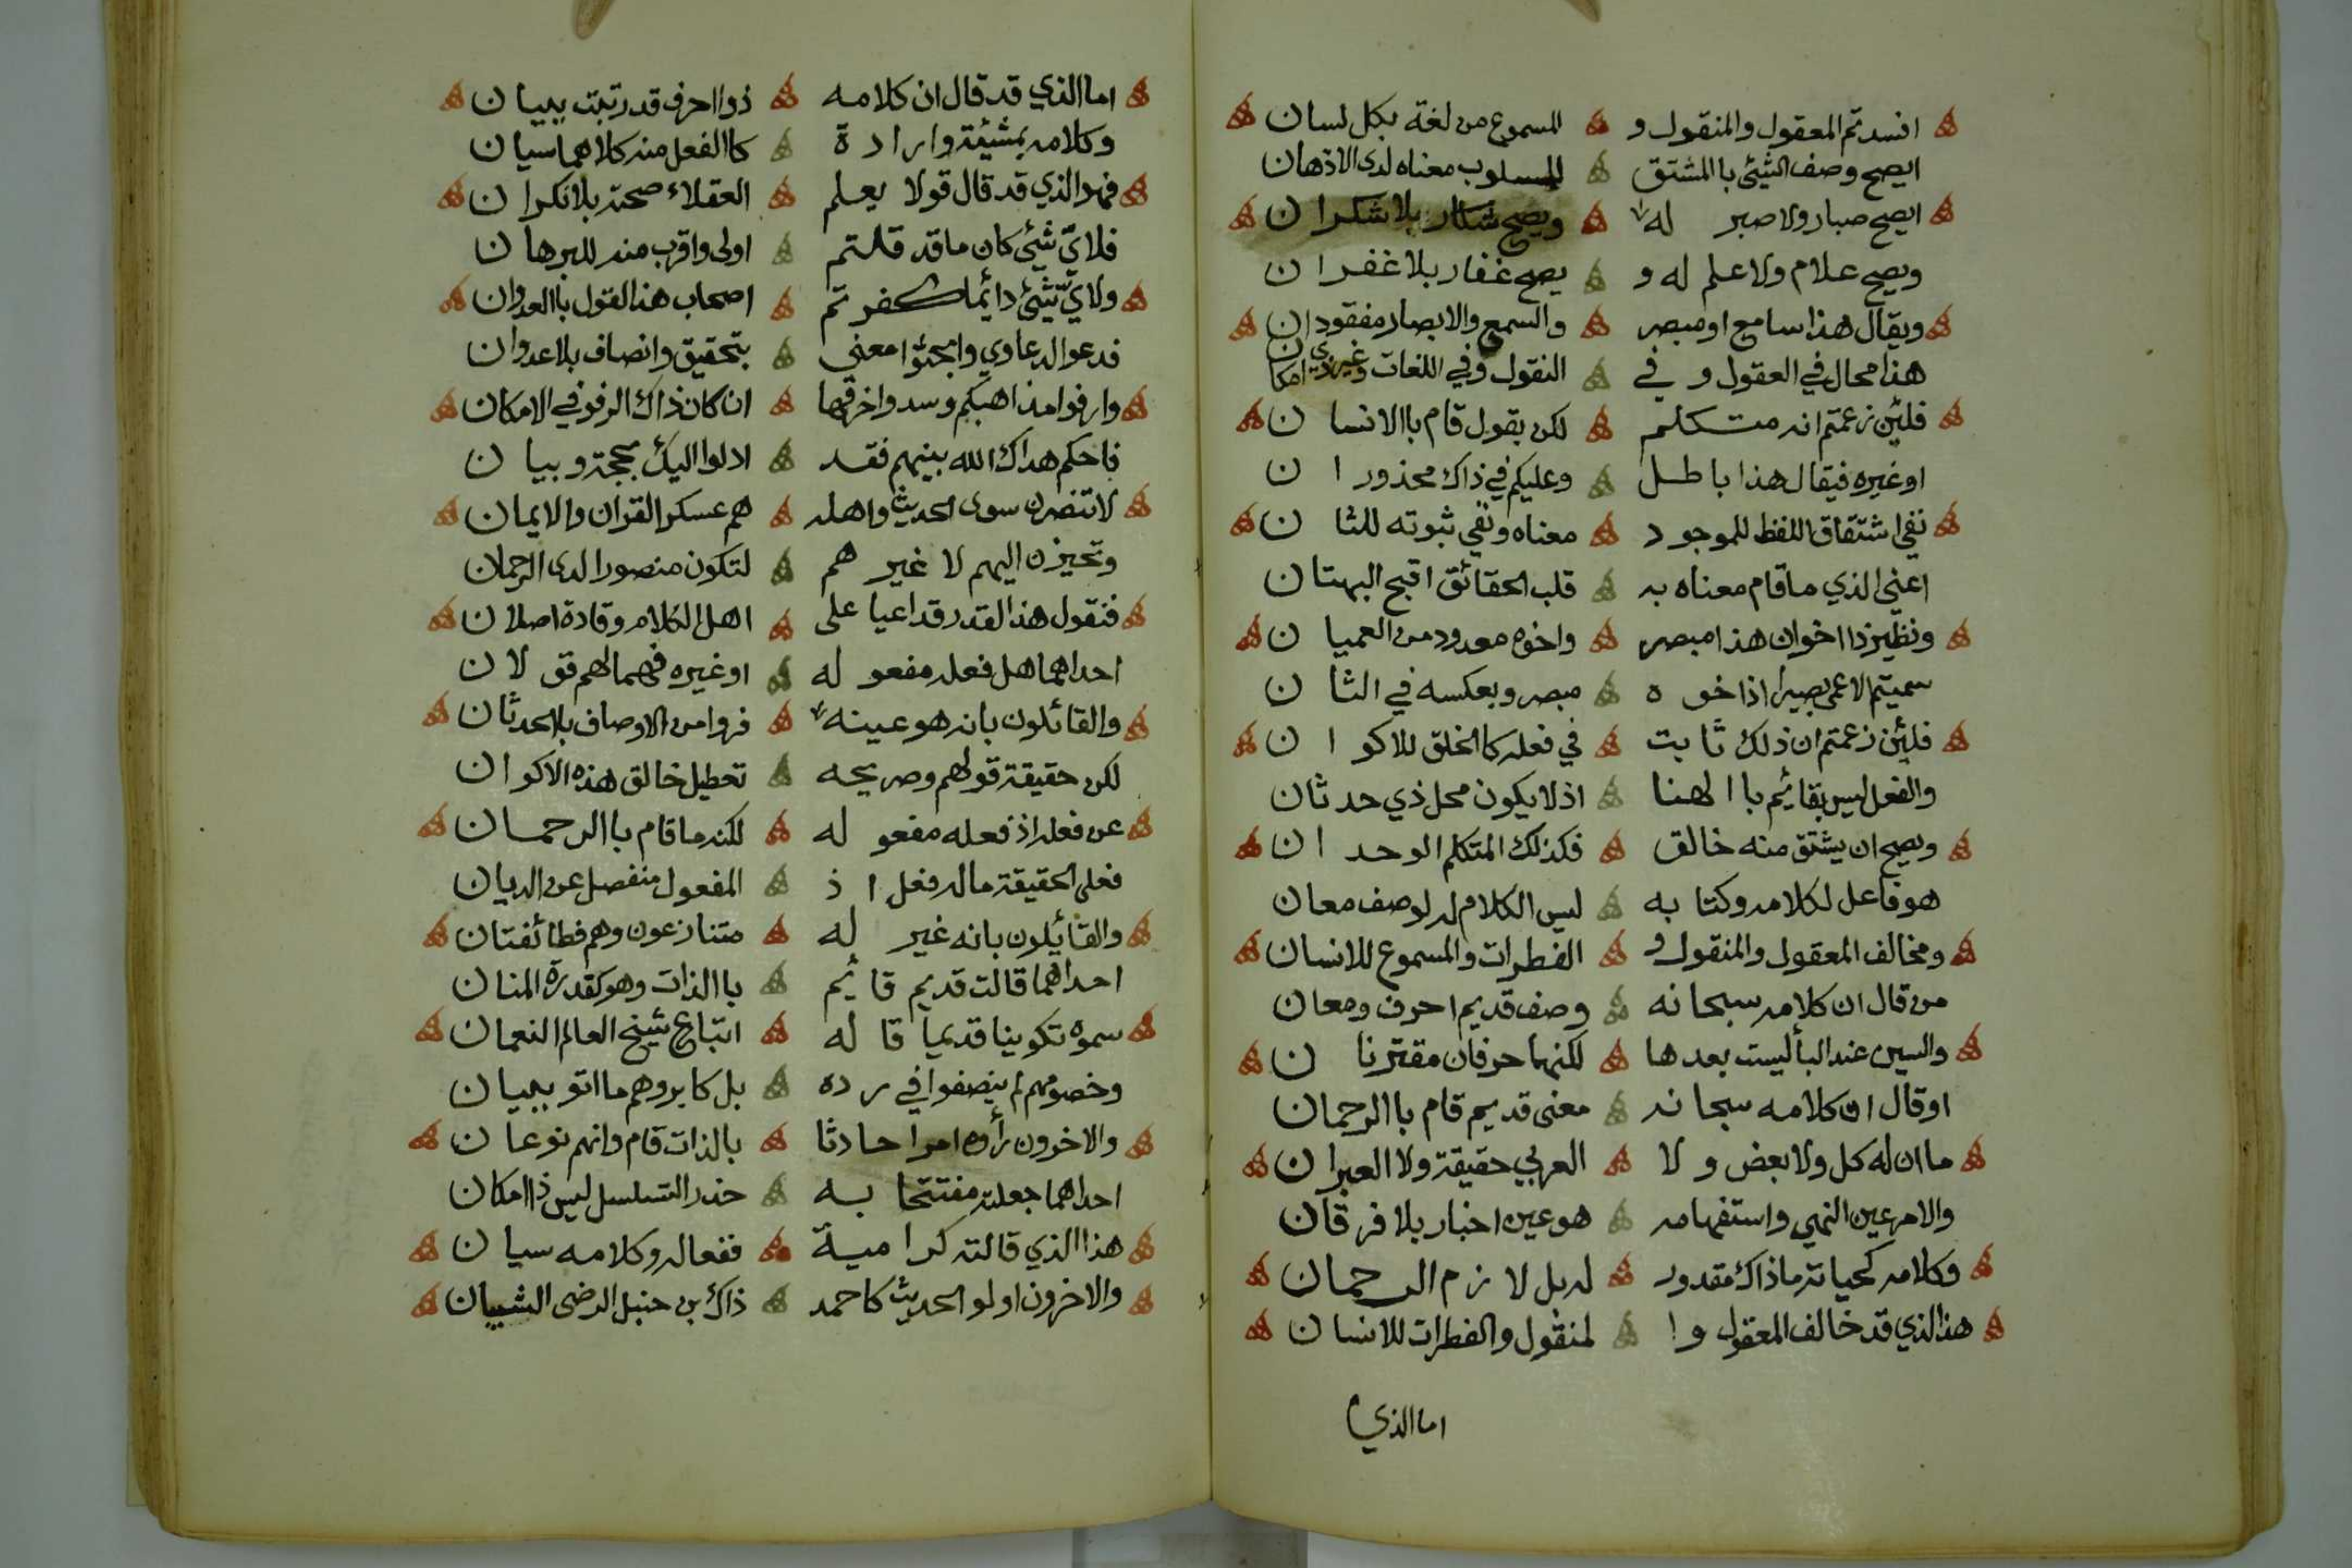 افسدتم المعقول والمنقول و المسموع من لغة بكل لسان
ايصح وصف الشيئ باالمشتق للمسلوب معناه لدى الاذهان
ايصح صبار ولا صبر له ويصح شكار بلا شكران
ويصح علام ولا علم له و يصح غفار بلا غفران
ويقال هذا سامع او مبصر والسمع والابصار مفقودان
هذا محال في العقول و في النقول وفي اللغات وغير ذي امكان
فلئن زعمتم انه متكلم لكن بقول قام باالانسان
او غيره فيقال هذا باطل وعليكم في ذاك محذوران
نفي اشتقاق اللفظ للموجود معناه ونفي ثبوته للثان
اعني الذي ما قام معناه به قلب الحقائق اقبح البهتان
ونظير ذا اخوان هذا مبصر واخوه معدود من العميان
سميتم الاعمى بصيرا اذا خوه مبصر وبعكسه في الثان
فلئن زعمتم ان ذلك ثابت في فعله كالخلق للاكوان
والفعل ليس بقائيم باالهنا اذ لا يكون محل ذي حدثان
ويصح ان يشتق منه خالق فكذلك المتكلم الوحدان
هو فاعل لكلامه وكتابه ليس الكلام له لوصف معان
ومخالف المعقول والمنقول و الفطرات والمسموع للانسان
من قال ان كلامه سبحانه وصف قديم احرف ومعان
والسين عند البأ ليست بعدها لكنهما حرفان مقترنان
او قال ان كلامه سبحانه معنى قديم قام باالرحمان
ما ان له كل ولا بعض و لا العربي حقيقة ولا العبران
والامر عين النهي واستفهامه هو عين اخبار بلا فرقان
وكلامه كحياته ما ذاك مقدور له بل لازم الرحمان
هذا الذي قد خالف المعقول وا لمنقول والفطرات للانسان
اما الذي
اما الذي قد قال ان كلامه ذوا احرف قد رتبت ببيان
وكلامه بمشيئة وارادة كاالفعل منه كلاهما سيان
فهو الذي قد قال قولا يعلم العقلاء صحته بلا نكران
فلاي شيئ كان ما قد قلتم اولى واقرب منه للبرهان
ولاي شيئ دائما كفرتم اصحاب هذا القول باالعدوان
فدعوا الدعاوي وابحثوا معنى بتحقيق وانصاف بلا عدوان
وارفوا مذاهبكم وسدوا خرقها ان كان ذاك الرفو في الامكان
فاحكم هداك الله بينهم فقد ادلوا اليك بحجة وبيان
لا تنصرن سوى الحديث واهله هم عسكر القران والايمان
وتحيزن اليهم لا غيرهم لتكون منصورا لدى الرحمان
فنقول هذا القدر قد اعيا على اهل الكلام وقادة اصلان
احداهما هل فعله مفعوله او غيره فهما لهم قولان
والقائلون بانه هو عينه فروا من الاوصاف بالحدثان
لكن حقيقة قولهم وصريحه تعطيل خالق هذه الاكوان
عن فعله اذ فعله مفعوله لكنه ما قام باالرحمان
فعلى الحقيقة ماله فعل اذ المفعول منفصل عن الديان
والقائيلون بانه غير له متنازعون وهم فطائفتان
احداهما قالت قديم قائيم باالذات وهو كقدرة المنان
سموه تكوينا قديما قاله اتباع شيخ العالم النعمان
وخصومهم لم ينصفوا في رده بل كابروهم ما اتو ببيان
والاخرون رأوه امرا حادثا بالذات قام وانهم نوعان
احداهما جعلته مفتتحا به حذر التسلسل ليس ذا امكان
هذا الذي قالته كرامية ففعاله وكلامه سيان
والاخرون اولو الحديث كاحمد ذاك بن حنبل الرضى الشيبان